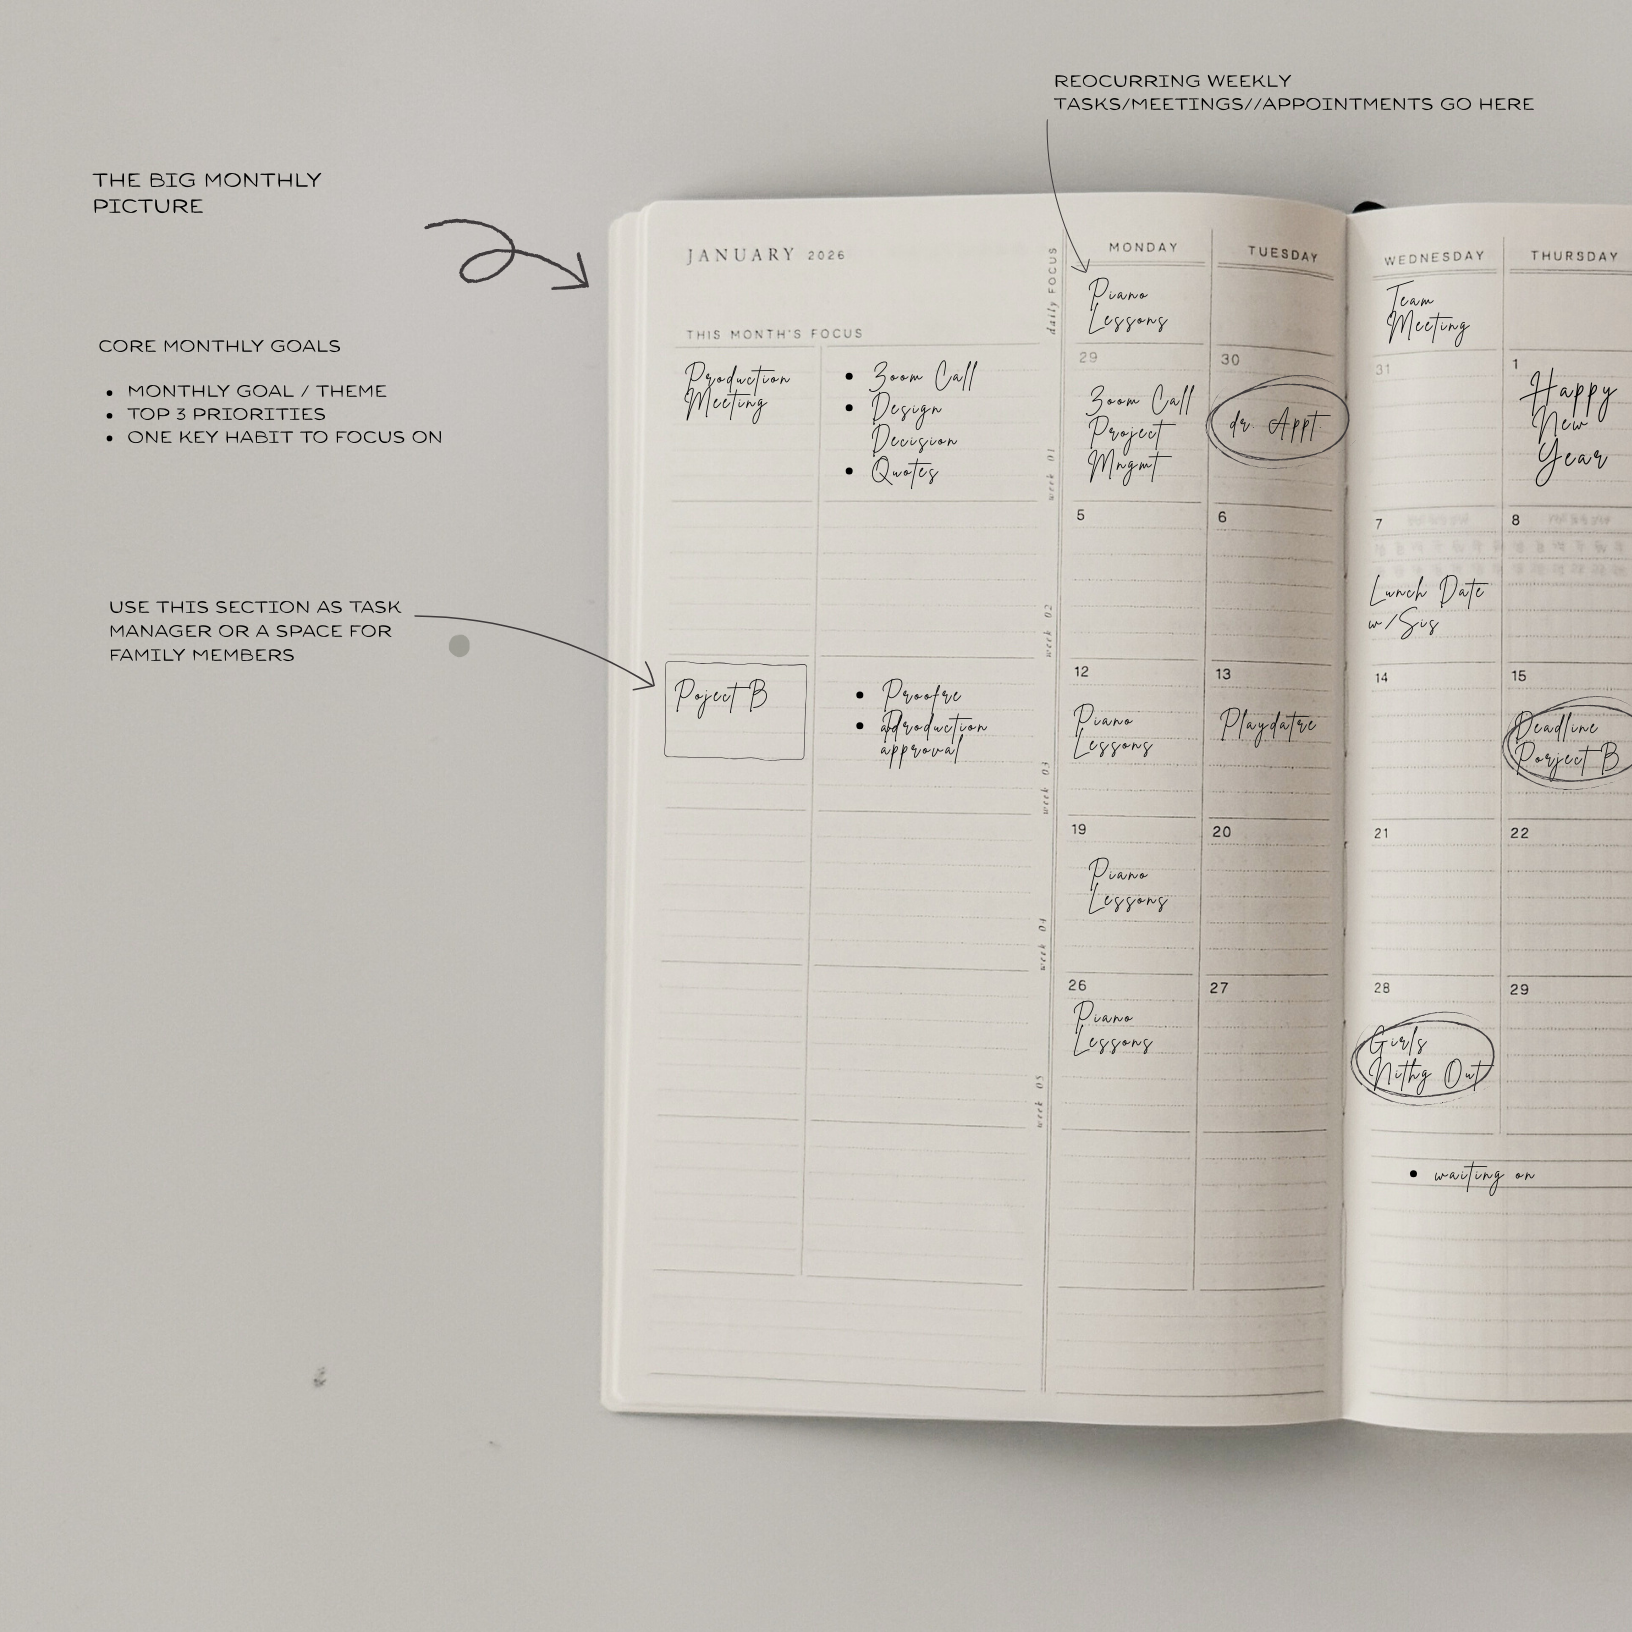 REOCURRING WEEKLY
TASKS/MEETINGS//APPOINTMENTS GO HERE
THE BIG MONTHLY
PICTURE
CORE MONTHLY GOALS
• MONTHLY GOAL / THEME
• TOP 3 PRIORITIES
• ONE KEY HABIT TO FOCUS ON
USE THIS SECTION AS TASK
MANAGER OR A SPACE FOR
FAMILY MEMBERS
JANUARY 2026
THIS MONTH'S FOCUS
Production
Meeting
• Zoom Call
• Design
Decision
• Quotes
Poject B
• Proofre
production
approval
daily FOCUS
week 01
week 02
week 03
week 04
week 05
MONDAY
TUESDAY
WEDNESDAY
THURSDAY
Piano
Lessons
Team
Meeting
29
Zoom Call
Project
Mngmt
30
dr. Appt.
31
1
Happy
New
Year
5
6
7
Lunch Date
w/Sis
8
12
Piano
Lessons
13
Playdatre
14
15
Deadline
Porject B
19
Piano
Lessons
20
21
22
26
Piano
Lessons
27
28
Girls
Nithg Out
29
• waiting on